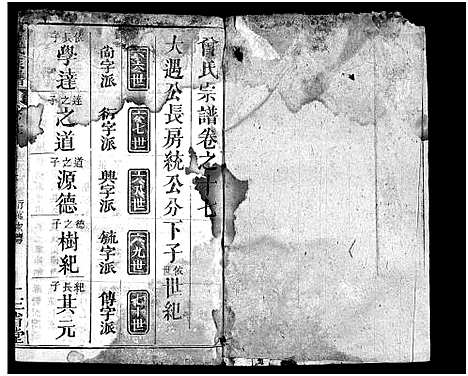 曾氏宗譜卷之十七
大遇公長房統公分下子依世世紀
六十六世
六十七世
六十八世
六十九世
七十世
尚字派
衍字派
興字派
毓字派
傳字派
依長子
學達
達之子
之道
道之子
源德
德之子
樹紀
紀長子
其元
三省堂